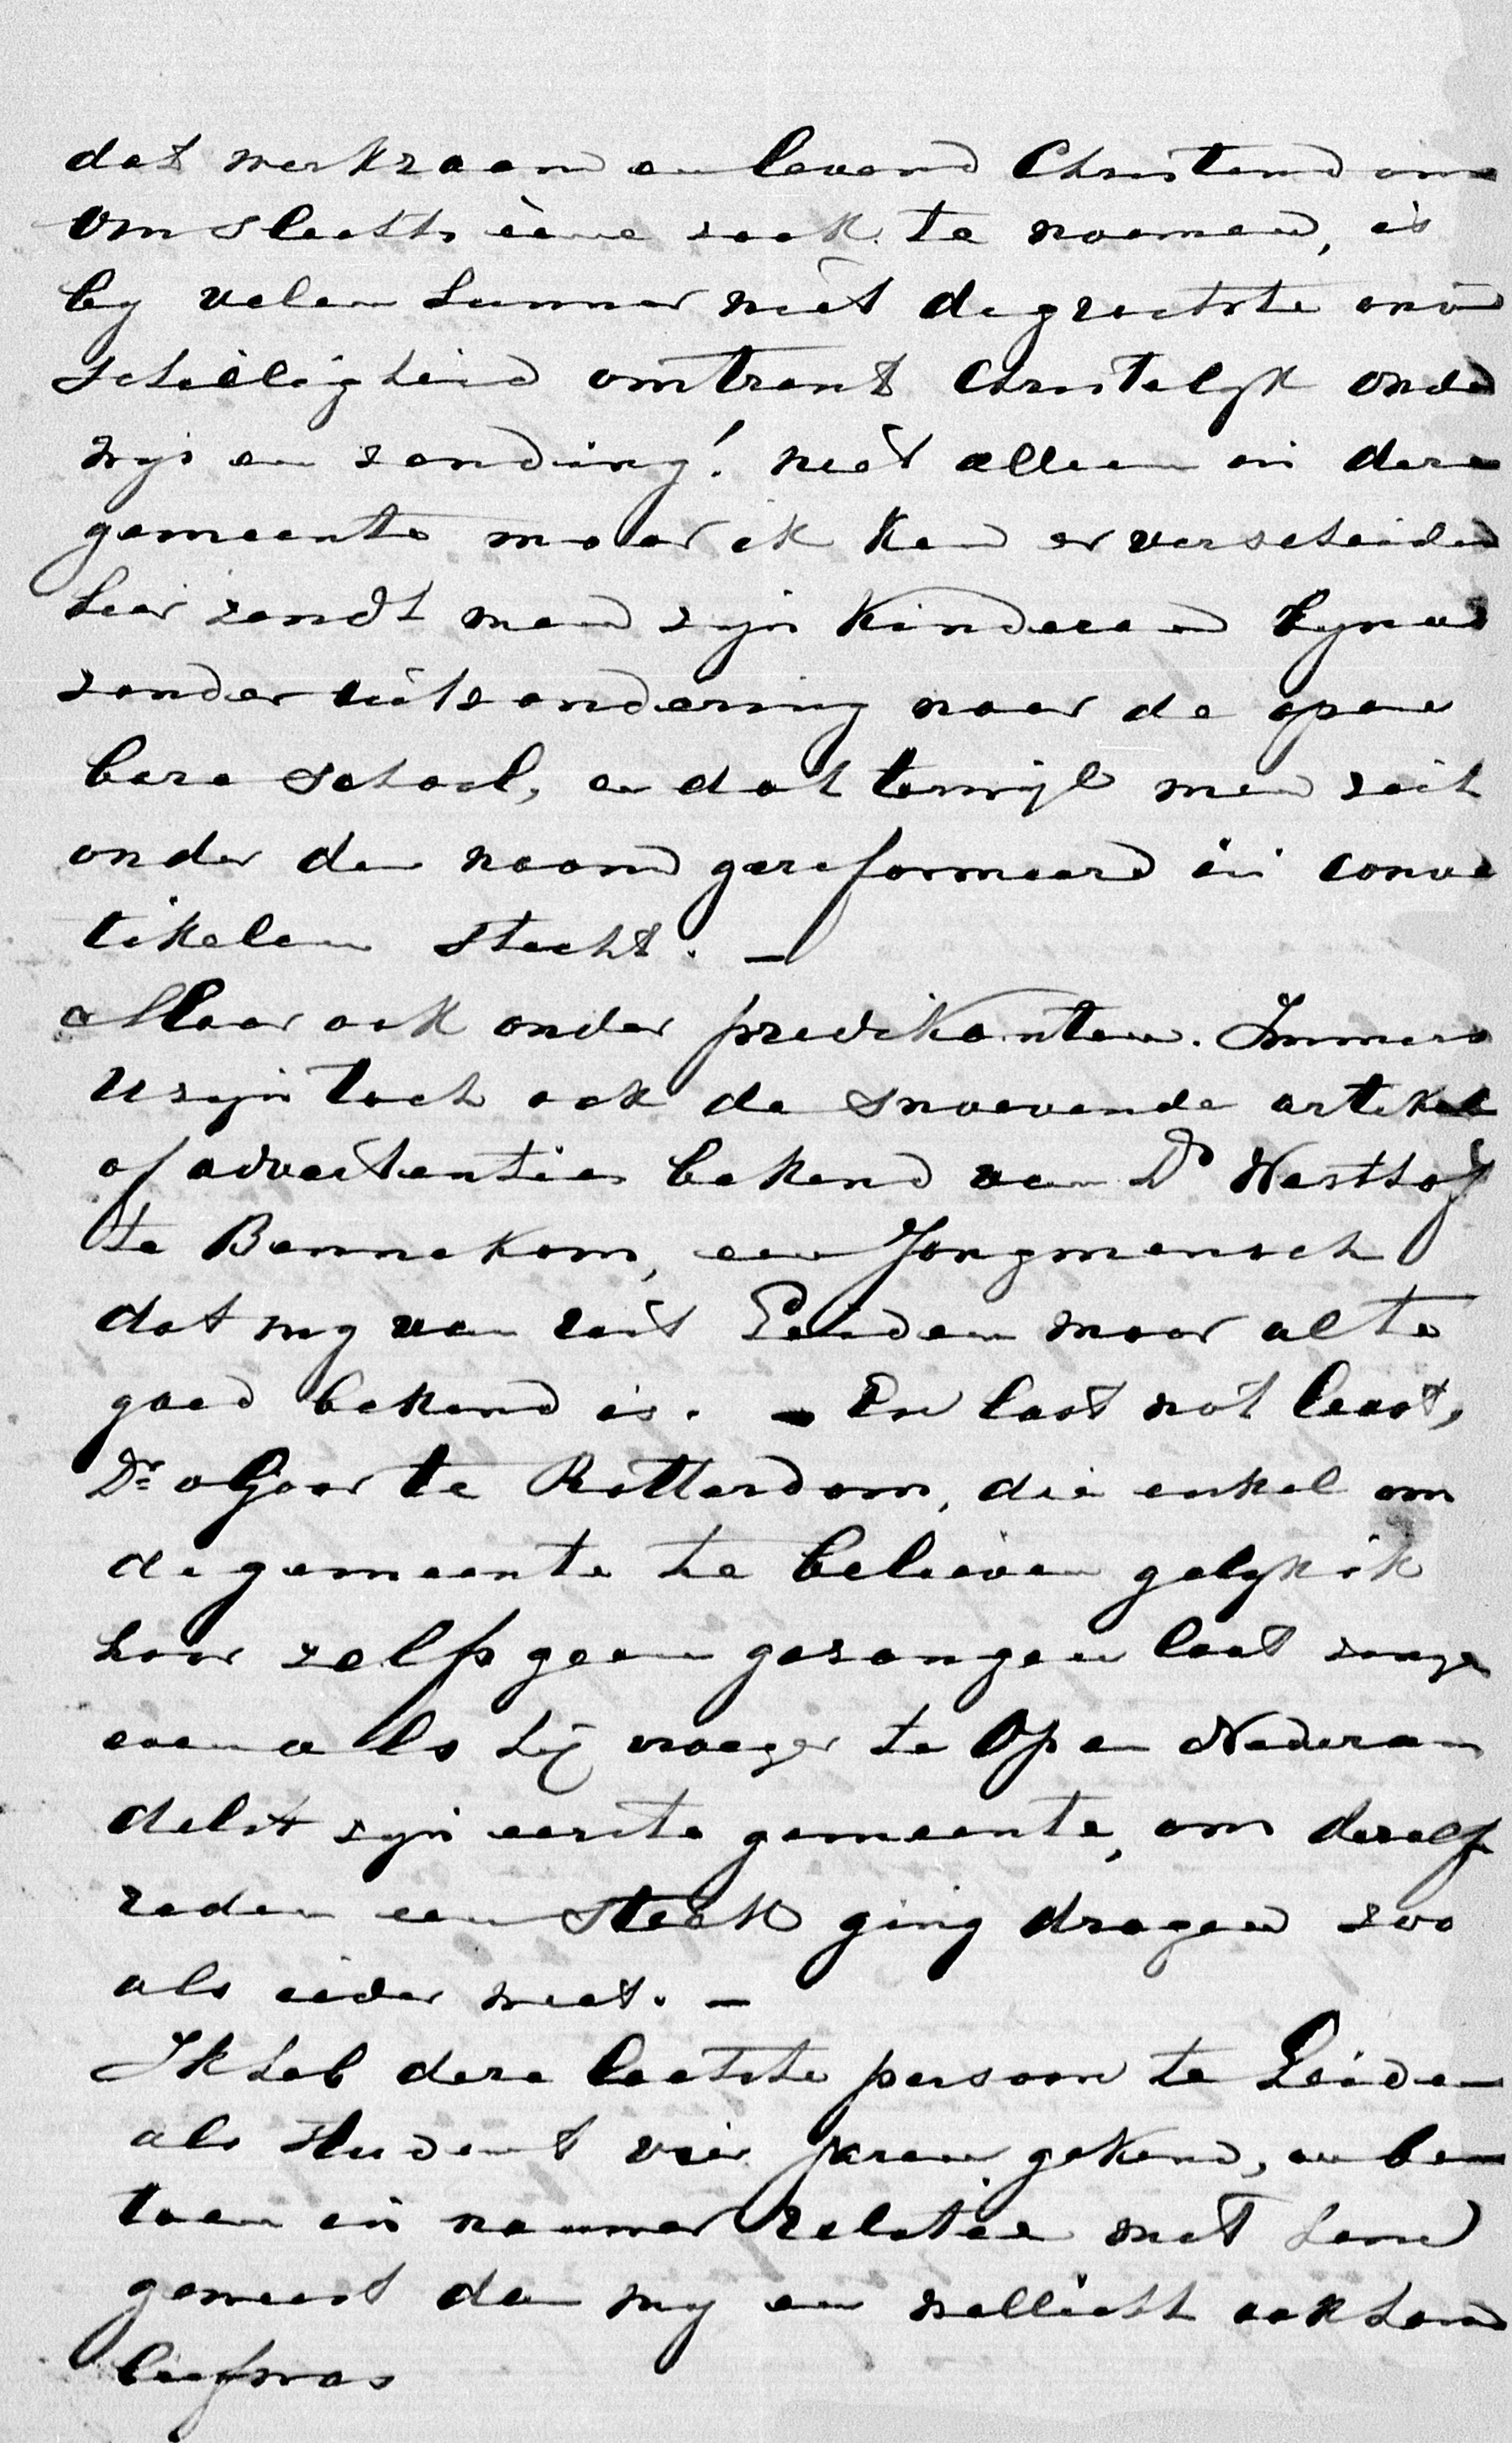 dat werkzaam en levend Christendom
Om slechts ééne zaak te noemen, is
by velen hunner niet de grootste onver
schilligheid omtrent Christelyk onder
wijs en zending! niet alleen in deze
gemeente maar ik ken er verscheiden
hier zendt men zijn kinderen byna
zonder uitzondering naar de open
bare school, en dat terwijl men zich
onder den naam gereformeerd in conven
tikelen sticht. —
Maar ook onder predikanten. Immers
U zijn toch ook de snoevende artikel
of advertentien bekend van Ds Westhof
te Bennekom, een Jongmensch
dat my van uit Leiden maar al te
goed bekend is. — En last not least,
Dr te Rotterdam, die enkel om
de gemeente te believen gelyk ik
hoor zelfs geen gezangen laat zinge
evenals hij vroeger te Op en Neder an
delst zijn eerste gemeente, om dezelf
reden een steek ging dragen zoo
als ieder weet. —
Ik heb deze laatste persoon te Leiden
als student vier jaren gekend, en ben
toen in nauwer relatie met hem
geweest dan my en wellicht ook hem
lief was